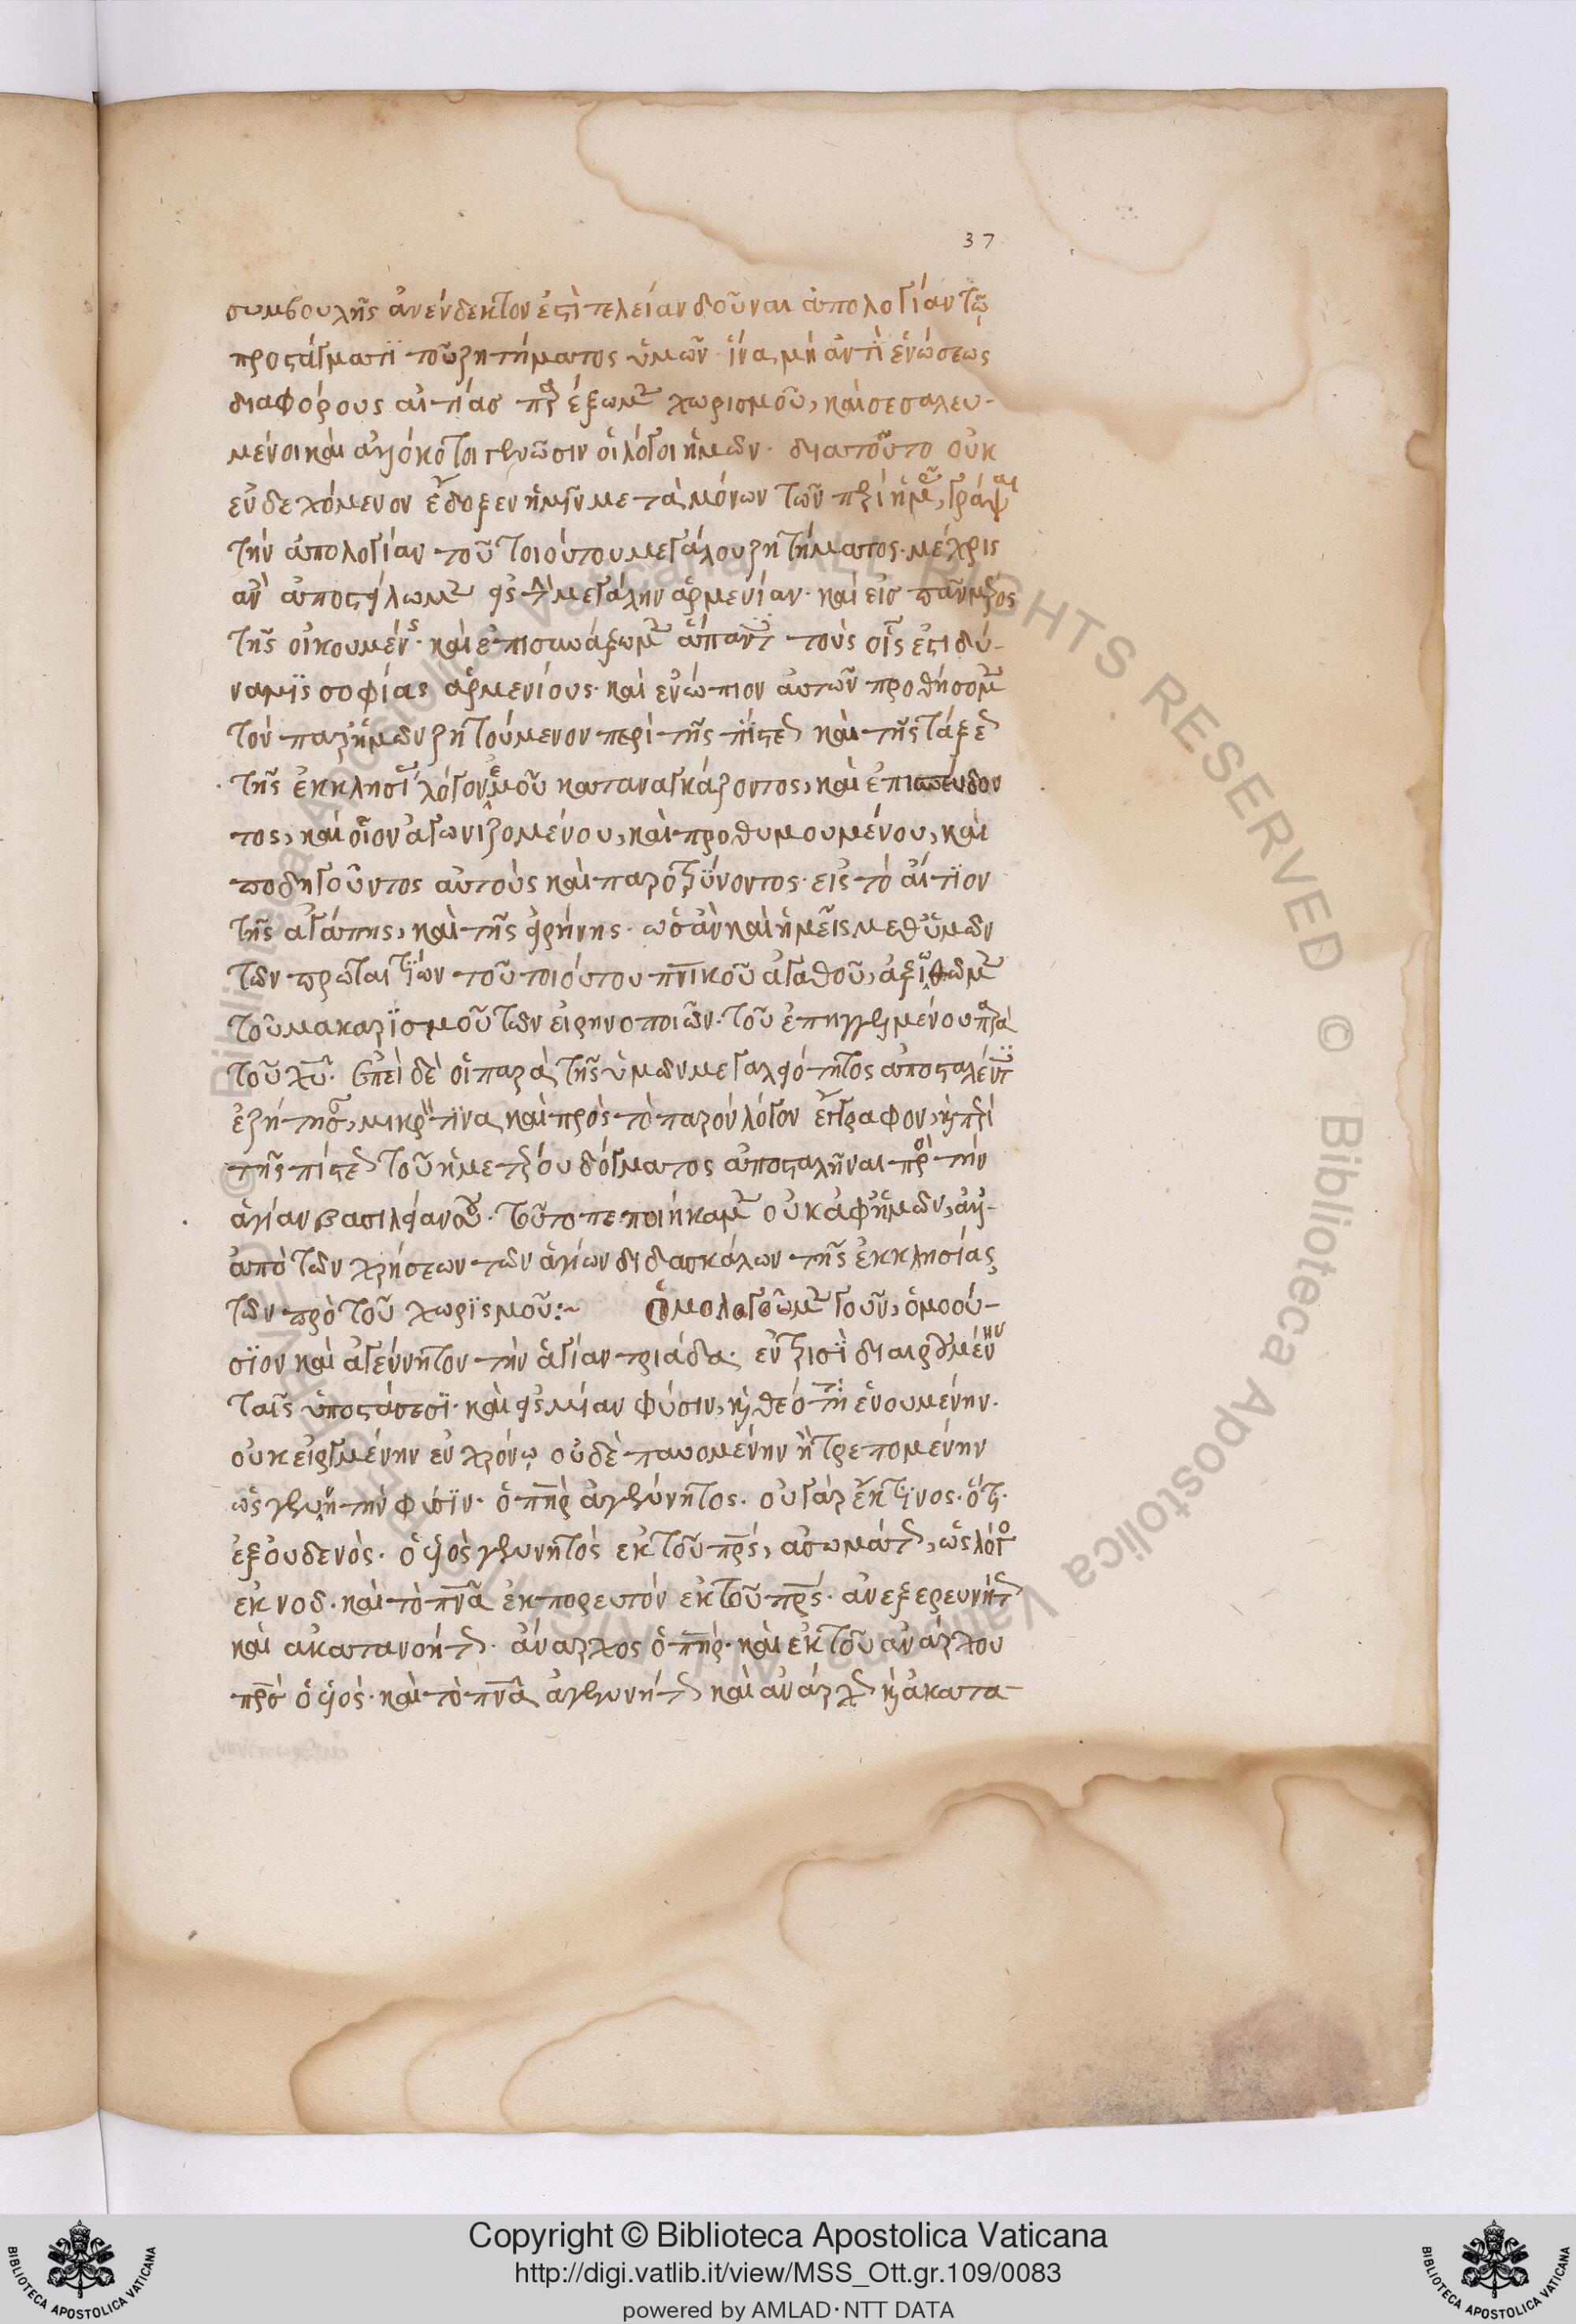 37
συμβουλῆς ἀνένδεκτον ἐστὶ τελείαν δοῦναι ἀπολογίαν τῷ
προστάγματϊ τοῦ ζητήματος ὑμῶν· ἵνα μὴ ἀντὶ ἑνώσεως
διαφόρους αἰτίας χωρισμοῦ, καὶ σεσαλευ-
μένοι καὶ γένωσιν οἱ λόγοι ἡμῶν· διατοῦτο οὐκ
ἐνδεχόμενον ἔδοξεν ἡμῖν μετὰ μόνων τῶν γράψαι
τὴν ἀπολογίαν τοῦ τοιούτου μεγάλου ζητήματος· μέχρις
ἂν ἀποστείλωμεν εἰς τὴν μεγάλην ἀρμενίαν· καὶ εἰς πᾶν μέρος
τῆς οἰκουμένης· καὶ ἐπισυνάξωμεν ἅπαντας τοὺς οἷς ἐστι δύ-
ναμϊς σοφίας ἀρμενίους· καὶ ἐνώπιον αὐτῶν προθήσομεν
τὸν παρ' ἡμῶν ζητούμενον περὶ τῆς πίστεως καὶ τῆς τάξεως
τῆς ἐκκλησίας λόγον ἐμοῦ καταναγκάζοντος, καὶ ἐπισπεύδον
τος, καὶ οἷον ἀγωνιζομένου, καὶ προθυμουμένου, καὶ
ποδηγοῦντος αὐτοὺς καὶ παροξύνοντος· εἰς τὸ αἴτϊον
τῆς ἀγάπης, καὶ τῆς εἰρήνης· ὡσὰν καὶ ἡμεῖς μεθ' ὑμῶν
τῶν πρωταιτΐων τοῦ τοιούτου πνικοῦ ἀγαθοῦ, ἀξιωθῶμεν
τοῦ μακαρϊσμοῦ τῶν εἰρηνοποιῶν· τοῦ ἐπηγγελμένου παρὰ
τοῦ χυ· Ἐπεὶ δὲ οἱ παρὰ τῆς ὑμῶν μεγαλειότητος ἀποσταλέντες
ἐζήτησαν, μικρόν τϊνα καὶ πρὸς τὸ παρὸν λόγον ἔγγραφον, περὶ
τῆς πίστεως τοῦ ἡμετέρου δόγματος ἀποσταλῆναι πρὸς τὴν
ἁγίαν βασιλείαν σου· τοῦτο πεποιήκαμεν οὐκ ἀφ' ἡμῶν, ἀλλ'
ἀπὸ τῶν χρήσεων τῶν ἁγίων διδασκάλων τῆς ἐκκλησίας
τῶν πρὸ τοῦ χωρϊσμοῦ:~ Ὁμολογοῦμεν γοῦν, ὁμοού-
σϊον καὶ ἀγέννητον τὴν ἁγίαν τριάδα· ἐν τρισὶ διαιρουμένην
ταῖς ὑποστάσεσϊ· καὶ εἰς μίαν φύσιν, καὶ θεότητι ἑνουμένην·
οὐκ εἰργμένην ἐν χρόνῳ οὐδὲ παυομένην ἢ τρεπομένην
τὴν φύσϊν· ὁ πηρ ἀγέννητος· οὐ γὰρ ἔκ τϊνος· ὅτι
ἐξ οὐδενὸς· ὁ υἱὸς γεννητὸς ἐκ τοῦ πρς, ἀσωμάτως, ὡς λόγος
ἐκ νοός· καὶ τὸ πνα ἐκπορευτὸν ἐκ τοῦ πρς· ἀνεξερευνήτως
καὶ ἀκατανοήτως· ἄναρχος ὁ πηρ· καὶ ἐκ τοῦ ἀνάρχου
πρς ὁ υἱὸς· καὶ τὸ πνα ἀγεννήτως καὶ ἀνάρχως καὶ ἀκατα-
Copyright © Biblioteca Apostolica Vaticana
http://digi.vatlib.it/view/MSS_Ott.gr.109/0083
powered by AMLAD·NTT DATA
BIBLIOTECA APOSTOLICA VATICANA
BIBLIOTECA APOSTOLICA VATICANA